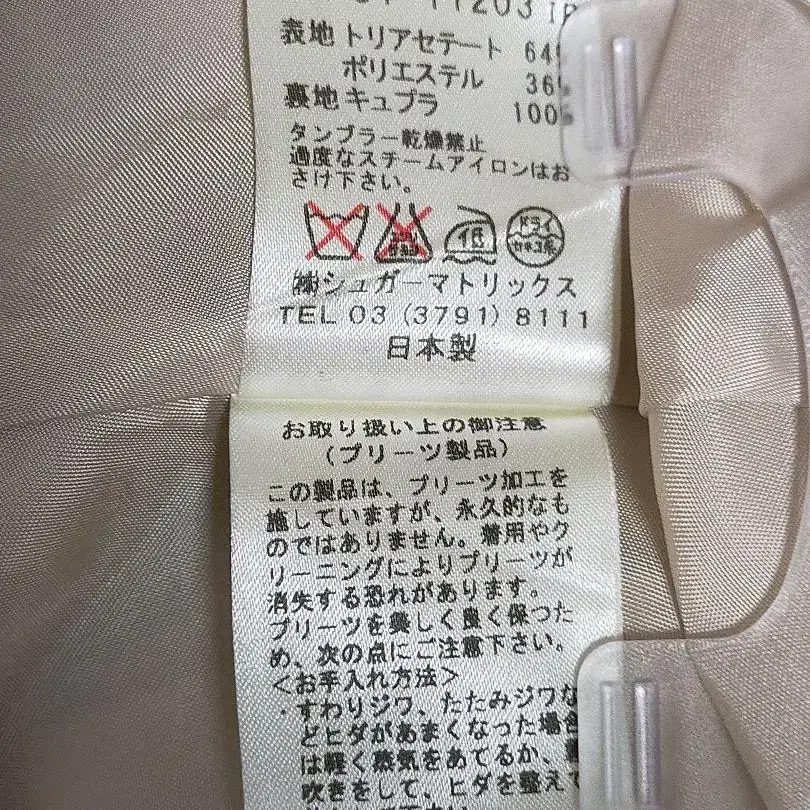 11203
表地 トリアセテート 64%
ポリエステル 36%
裏地 キュプラ 100%
タンブラー乾燥禁止
過度なスチームアイロンはお
さけ下さい。
低 ドライ
㈱シュガーマトリックス
TEL 03 (3791) 8111
日本製
お取り扱い上の御注意
(プリーツ製品)
この製品は、プリーツ加工を
施していますが、永久的なも
のではありません。着用やク
リーニングによりプリーツが
消失する恐れがあります。
プリーツを美しく良く保つた
め、次の点にご注意下さい。
<お手入れ方法>
・すわりジワ、たたみジワな
どヒダがあまくなった場合
は軽く蒸気をあてるか、
吹きをして、ヒダを整えて